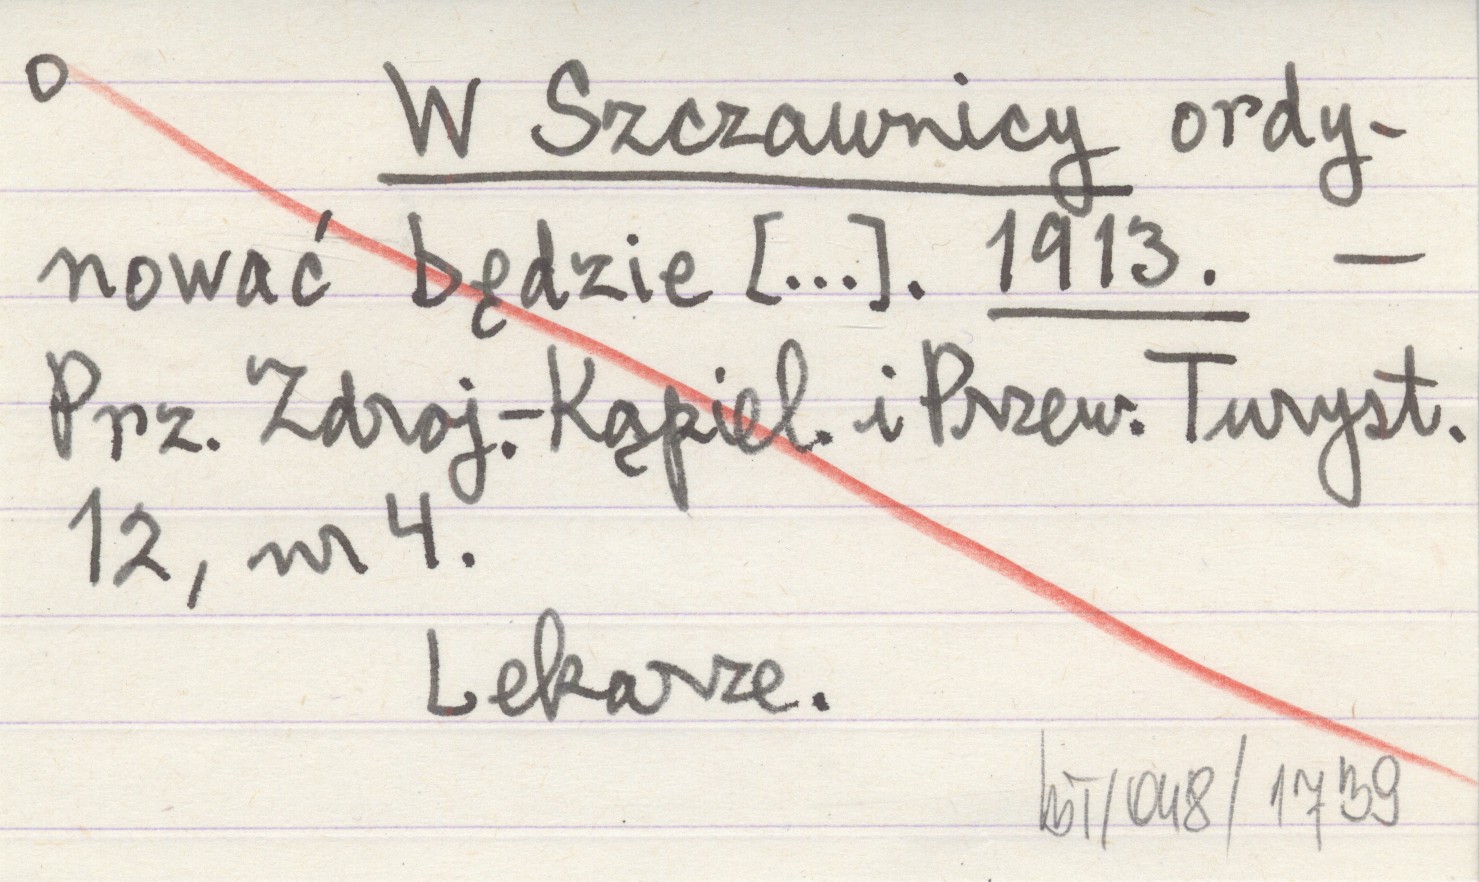 o
W Szczawnicy ordy-
nować będzie [...]. 1913. —
Prz. Zdroj.-Kąpiel. i Przew. Turyst.
12, nr 4.
Lekarze.
/048/1739